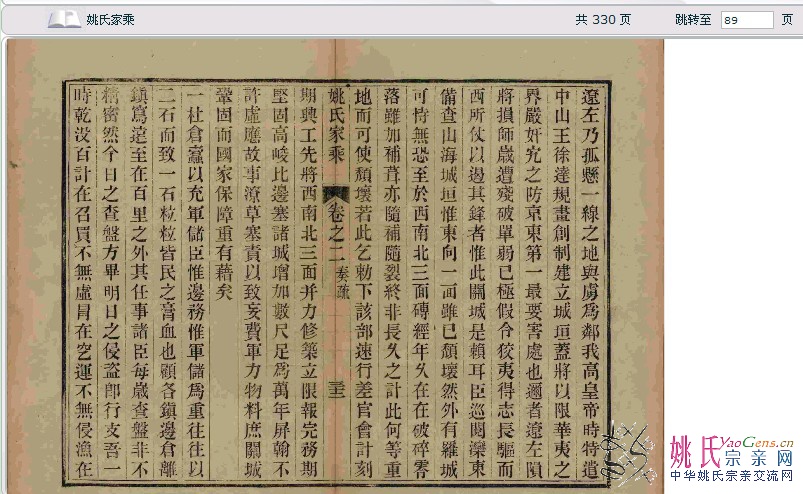 姚氏家乘
共 330 页
跳转至 89 页
遼左乃孤懸一線之地與虜為鄰我高皇帝時特遣
中山王徐達規畫創制建立城垣蓋將以限華夷之
界嚴奸宄之防京東第一最要害處也邇者遼左隕
將損師歲遭殘破單弱已極假令狡夷得志長驅而
西所仗以邊其鋒者惟此關城是賴耳臣巡閱灤東
備查山海城垣惟東向一面雖已頹壞然外有羅城
可恃無恐至於西南北三面磚經年久在在破碎零
落雖加補葺亦隨補隨裂終非長久之計此何等重
地而可使頹壞若此乞勅下該部速行差官會計刻
姚氏家乘 卷之二 奏疏 三十三
期興工先將西南北三面并力修築立限報完務期
堅固高峻比邊塞諸城增加數尺足為萬年屏翰不
許虛應故事潦草塞責以致妄費軍力物料庶關城
鞏固而國家保障重有藉矣
一杜倉蠹以充軍儲臣惟邊務惟軍儲為重往往以
二石而致一石粒粒皆民之膏血也顧各鎮邊倉離
鎮寫遠至在百里之外其任事諸臣每歲查盤非不
精密然今日之查盤方畢明日之侵盜即行支吾一
時乾没百計在召買不無虛冒在空運不無侵漁在
姚氏YaoGens.cn
宗亲网
中华姚氏宗亲交流网